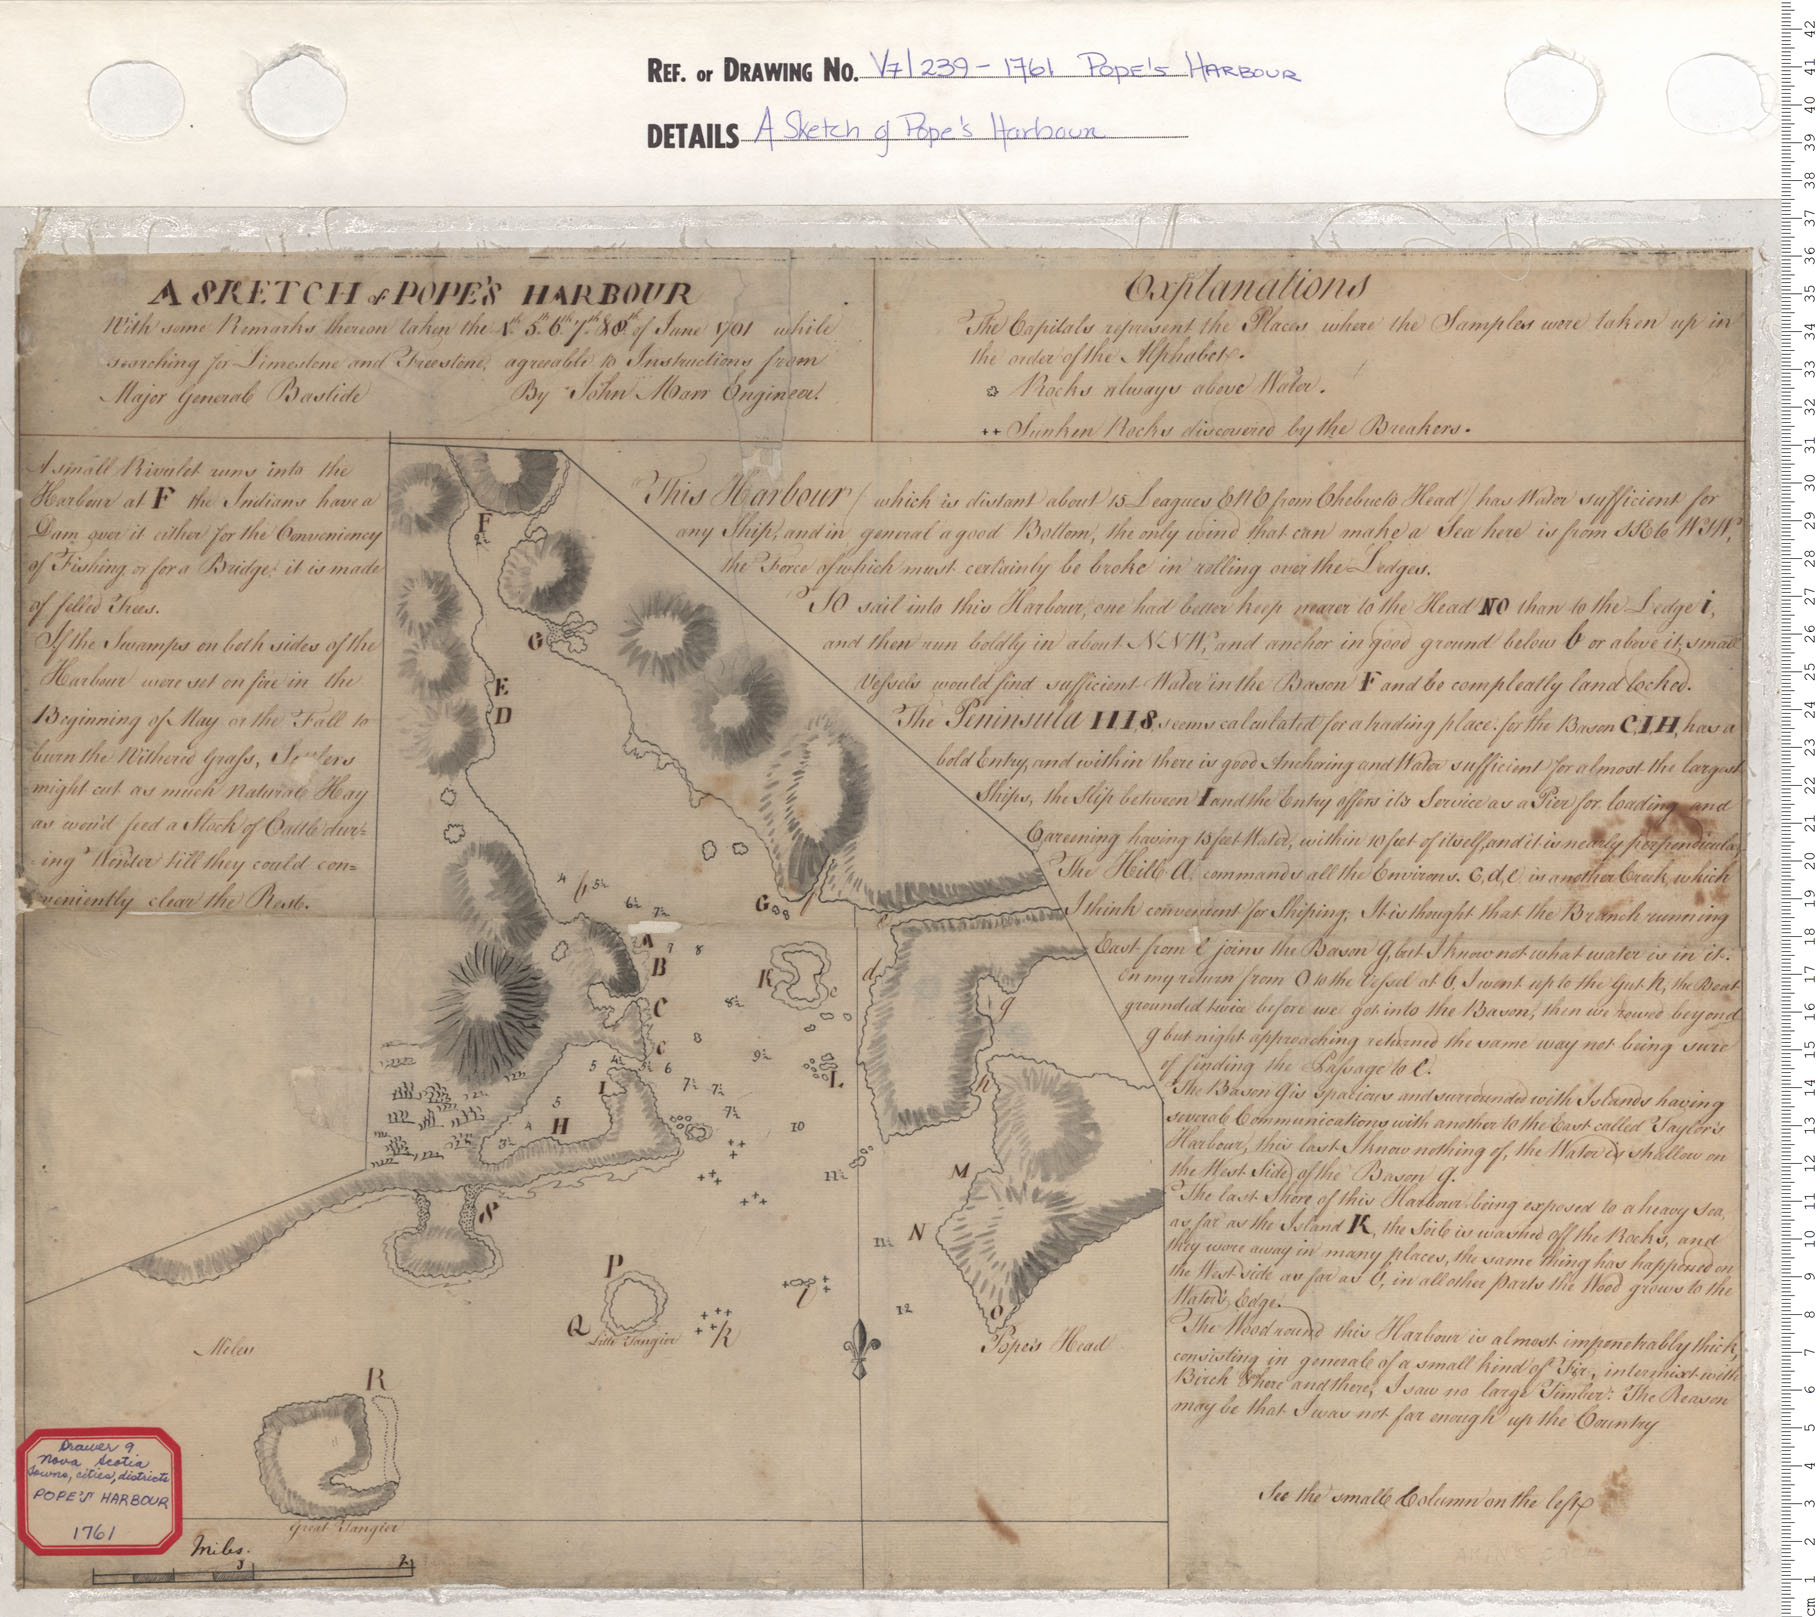 REF. OR DRAWING NO. V7/239-1761 POPE'S HARBOUR
DETAILS A Sketch of Pope's Harbour
A SKETCH of POPE'S HARBOUR
With some Remarks thereon taken the 4th 5th 6th 7th & 8th of June 1761 while
searching for Limestone and Freestone, agreable to Instructions from
Major General Bastide By John Marr Engineer.
Explanations
The Capitals represent the Places where the Samples were taken up in
the order of the Alphabet.
Rocks always above Water.
++ Sunken Rocks discovered by the Breakers.
A small Rivulet runs into the
Harbour at F the Indians have a
Dam over it either for the Conveniency
of Fishing or for a Bridge, it is made
of felled Trees.
If the Swamps on both sides of the
Harbour were set on fire in the
Beginning of May or the Fall to
burn the Withered Grass, Settlers
might cut as much natural Hay
as wou'd feed a Stock of Cattle dur=
ing Winter till they could con=
veniently clear the Rest.
This Harbour (which is distant about 15 Leagues ENE from Chebucto Head) has Water sufficient for
any Ship, and in general a good Bottom, the only wind that can make a Sea here is from SSE to WSW,
the Force of which must certainly be broke in rolling over the Ledges.
To sail into this Harbour, one had better keep nearer to the Head NO than to the Ledge i,
and then run boldly in about NNW, and anchor in good ground below b or above it, small
Vessels would find sufficient Water in the Bason F and be compleatly land locked.
The Peninsula HIS seems calculated for a trading place: for the Bason C,I,H, has a
bold Entry, and within there is good Anchoring and Water sufficient for almost the largest
Ships, the Slip between I and the Entry offers its Service as a Pier for loading and
Careening having 15 feet Water, within 10 feet of itself, and it is nearly perpendicular
The Hill a, commands all the Environs. c, d, e is another Creek which
I think convenient for Shiping. It is thought that the Branch running
East from e joins the Bason g, but I know not what water is in it:
in my return from O to the Vessel at b, I went up to the Gut h, the Boat
grounded twice before we got into the Bason, then we rowed beyond
g but night approaching returned the same way not being sure
of finding the Passage to e.
The Bason g is spacious and surrounded with Islands having
several Communications with another to the East called Taylor's
Harbour, this last I know nothing of, the Water is shallow on
the West Side of the Bason g.
The East Shore of this Harbour being exposed to a heavy Sea,
as far as the Island K, the Soil is washed off the Rocks, and
they wore away in many places, the same thing has happened on
the West side as far as C, in all other parts the Wood grows to the
Water's Edge.
The Wood round this Harbour is almost impenetrably thick,
consisting in general of a small kind of Fir, intermixt with
Birch here and there, I saw no large Timber: The Reason
may be that I was not far enough up the Country
See the small Column on the left
F
G
E
D
4 b 5½
6½ 7½
G
f
e
A 7 8
B
K
c
d
C
8½
g
c
8
5 4½
6
9½
L
I
7½ 7½
h
5
7½
H
4
3½
10
M
11½
S
N
11½
P
l
Q
Little Tangier
k
12
O
Pope's Head
Miles
R
Great Tangier
Drawer 9
Nova Scotia
Towns, cities, districts
POPE'S HARBOUR
1761
Miles.
2
cm 1 2 3 4 5 6 7 8 9 10 11 12 13 14 15 16 17 18 19 20 21 22 23 24 25 26 27 28 29 30 31 32 33 34 35 36 37 38 39 40 41 42